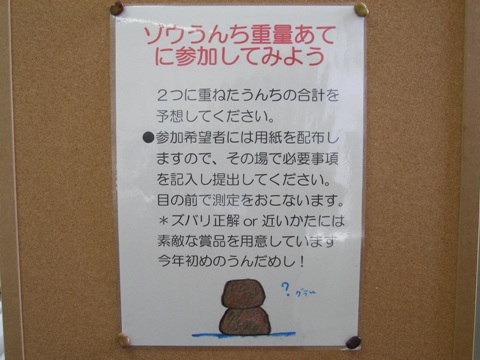 ゾウうんち重量あて
に参加してみよう
２つに重ねたうんちの合計を
予想してください。
●参加希望者には用紙を配布し
ますので、その場で必要事項
を記入し提出してください。
目の前で測定をおこないます。
＊ズバリ正解 or 近いかたには
素敵な賞品を用意しています
今年初めのうんだめし！
？グラム